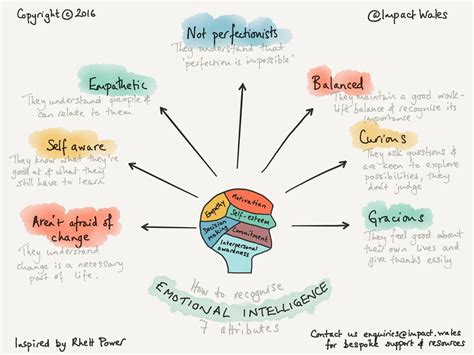 Copyright © 2016
@ImpactWales
Not perfectionists
They understand that
'perfection is impossible'
Empathetic
They understand people &
can relate to them
Balanced
They maintain a good work-
life balance & recognise its
importance
Self aware
They know what they're
good at & what they
still have to learn
Curious
They ask questions &
are keen to explore
possibilities, they
don't judge
Aren't afraid of
change
They understand
change is a necessary
part of life.
Gracious
They feel good about
their own lives and
give thanks easily
Empathy
Motivation
Self-esteem
Decision
Making
Commitment
Interpersonal
awareness
How to recognise
EMOTIONAL INTELLIGENCE
7 attributes
Inspired by Rhett Power
Contact us enquiries@impact.wales
for bespoke support & resources